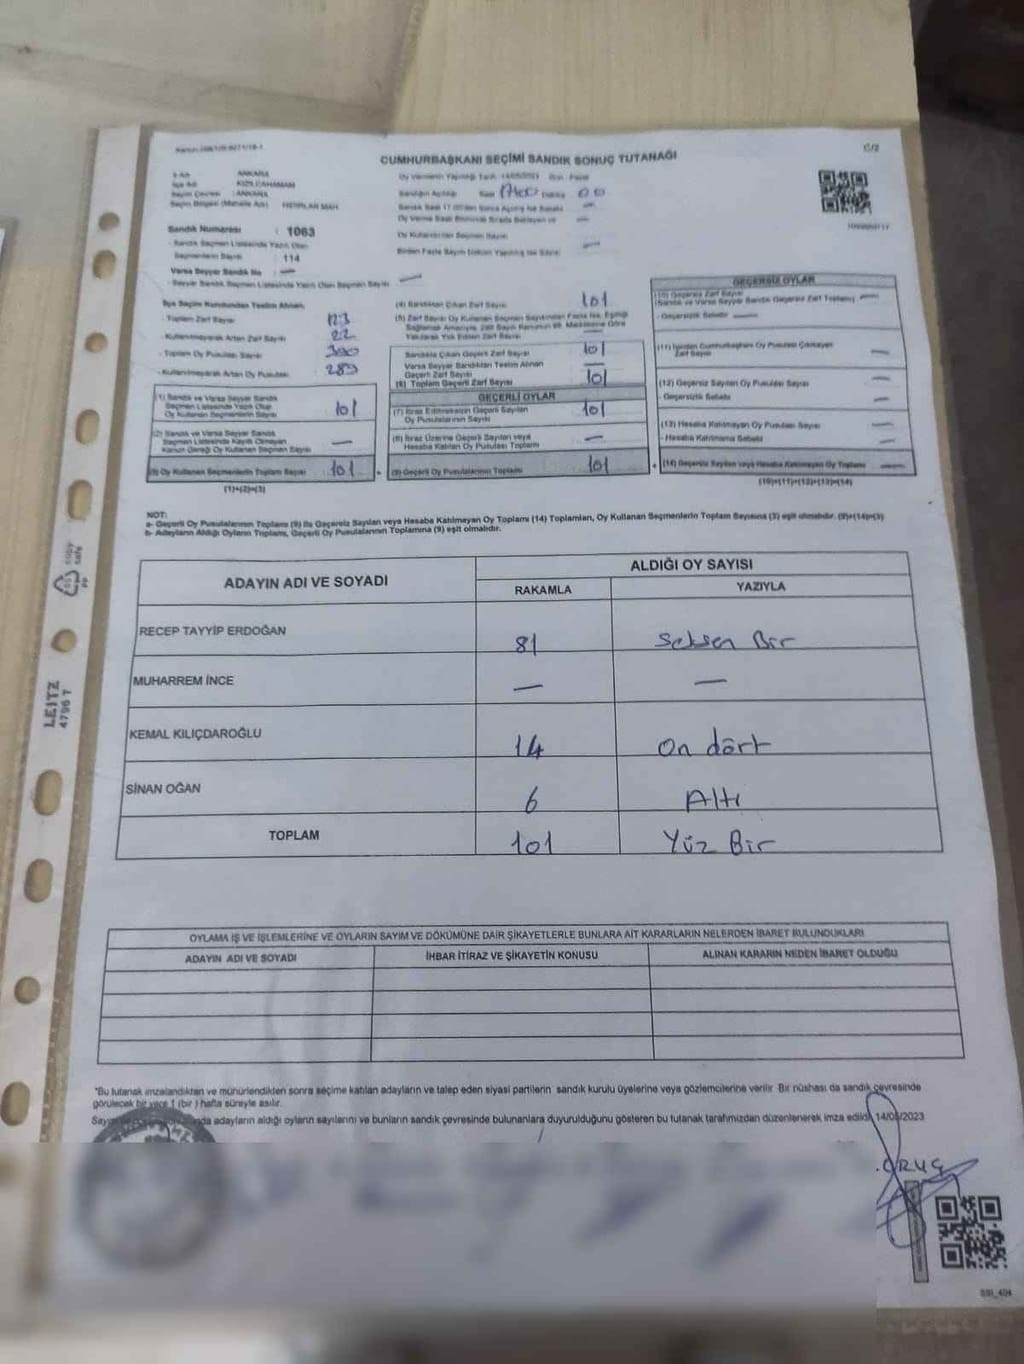 CUMHURBAŞKANI SEÇİMİ SANDIK SONUÇ TUTANAĞI
ANKARA
KIZILCAHAMAM
ANKARA
Sandık Numarası : 1063
Sandık Seçmen Listesinde Yazılı Olan
Seçmenlerin Sayısı : 114
Varsa Seyyar Sandık No : —
Seyyar Sandık Seçmen Listesinde Yazılı Olan Seçmen Sayısı —
İlçe Seçim Kurulundan Teslim Alınan;
Toplam Zarf Sayısı 123
Kullanılmayarak Artan Zarf Sayısı 22
Toplam Oy Pusulası Sayısı
Kullanılmayarak Artan Oy Pusulası 289
(1) Sandık ve Varsa Seyyar Sandık
Seçmen Listesinde Yazılı Olup
Oy Kullanan Seçmenlerin Sayısı 101
(2) Sandık ve Varsa Seyyar Sandık
Seçmen Listesinde Kayıtlı Olmayan
Kanun Gereği Oy Kullanan Seçmen Sayısı —
(3) Oy Kullanan Seçmenlerin Toplam Sayısı 101
(1)+(2)=(3)
(4) Sandıktan Çıkan Zarf Sayısı 101
Sandıkta Çıkan Geçerli Zarf Sayısı 101
Varsa Seyyar Sandıktan Teslim Alınan
Geçerli Zarf Sayısı —
(6) Toplam Geçerli Zarf Sayısı 101
GEÇERLİ OYLAR
(7) İtiraz Edilmeksizin Geçerli Sayılan
Oy Pusulalarının Sayısı 101
(8) İtiraz Üzerine Geçerli Sayılan veya
Hesaba Katılan Oy Pusulası Toplamı —
(9) Geçerli Oy Pusulalarının Toplamı 101
GEÇERSİZ OYLAR
(12) Geçersiz Sayılan Oy Pusulası Sayısı —
Geçersizlik Sebebi —
(13) Hesaba Katılmayan Oy Pusulası Sayısı —
Hesaba Katılmama Sebebi —
(14) Geçersiz Sayılan veya Hesaba Katılmayan Oy Toplamı —
NOT:
a- Geçerli Oy Pusulalarının Toplamı (9) ile Geçersiz Sayılan veya Hesaba Katılmayan Oy Toplamı (14) Toplamları, Oy Kullanan Seçmenlerin Toplam Sayısına (3) eşit olmalıdır. (9)+(14)=(3)
b- Adayların Aldığı Oyların Toplamı, Geçerli Oy Pusulalarının Toplamına (9) eşit olmalıdır.
ADAYIN ADI VE SOYADI ALDIĞI OY SAYISI
RAKAMLA YAZIYLA
RECEP TAYYİP ERDOĞAN 81 Seksen Bir
MUHARREM İNCE — —
KEMAL KILIÇDAROĞLU 14 On dört
SİNAN OĞAN 6 Altı
TOPLAM 101 Yüz Bir
OYLAMA İŞ VE İŞLEMLERİNE VE OYLARIN SAYIM VE DÖKÜMÜNE DAİR ŞİKAYETLERLE BUNLARA AİT KARARLARIN NELERDEN İBARET BULUNDUKLARI
ADAYIN ADI VE SOYADI İHBAR İTİRAZ VE ŞİKAYETİN KONUSU ALINAN KARARIN NEDEN İBARET OLDUĞU
*Bu tutanak imzalandıktan ve mühürlendikten sonra seçime katılan adayların ve talep eden siyasi partilerin sandık kurulu üyelerine veya gözlemcilerine verilir. Bir nüshası da sandık çevresinde
görülecek bir yere 1 (bir) hafta süreyle asılır.
adayların aldığı oyların sayılarını ve bunların sandık çevresinde bulunanlara duyurulduğunu gösteren bu tutanak tarafımızdan düzenlenerek imza edildi. 14/05/2023
ORUÇ
LEITZ
4796 T
copy safe
PP